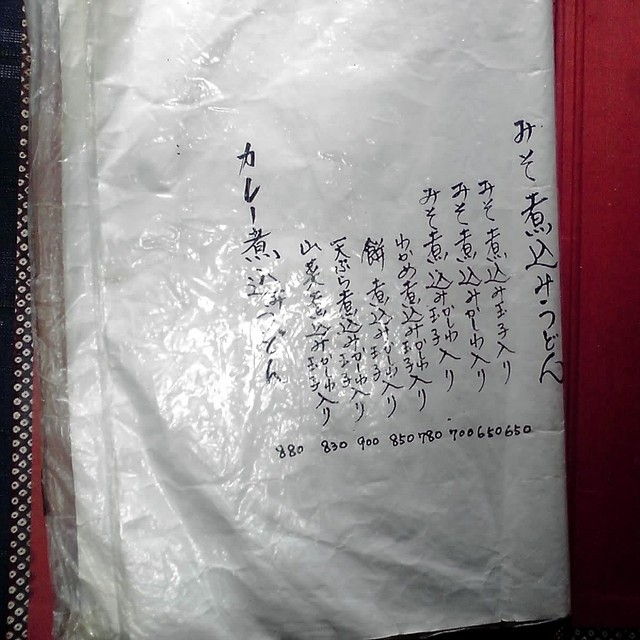 みそ煮込みうどん
みそ煮込み玉子入り 650
みそ煮込みかしわ入り 650
みそ煮込みかしわ玉子入り 700
わかめ煮込みかしわ玉子入り 780
餅煮込みかしわ玉子入り 850
天ぷら煮込みかしわ玉子入り 900
山菜煮込みかしわ玉子入り 830
カレー煮込みうどん 880